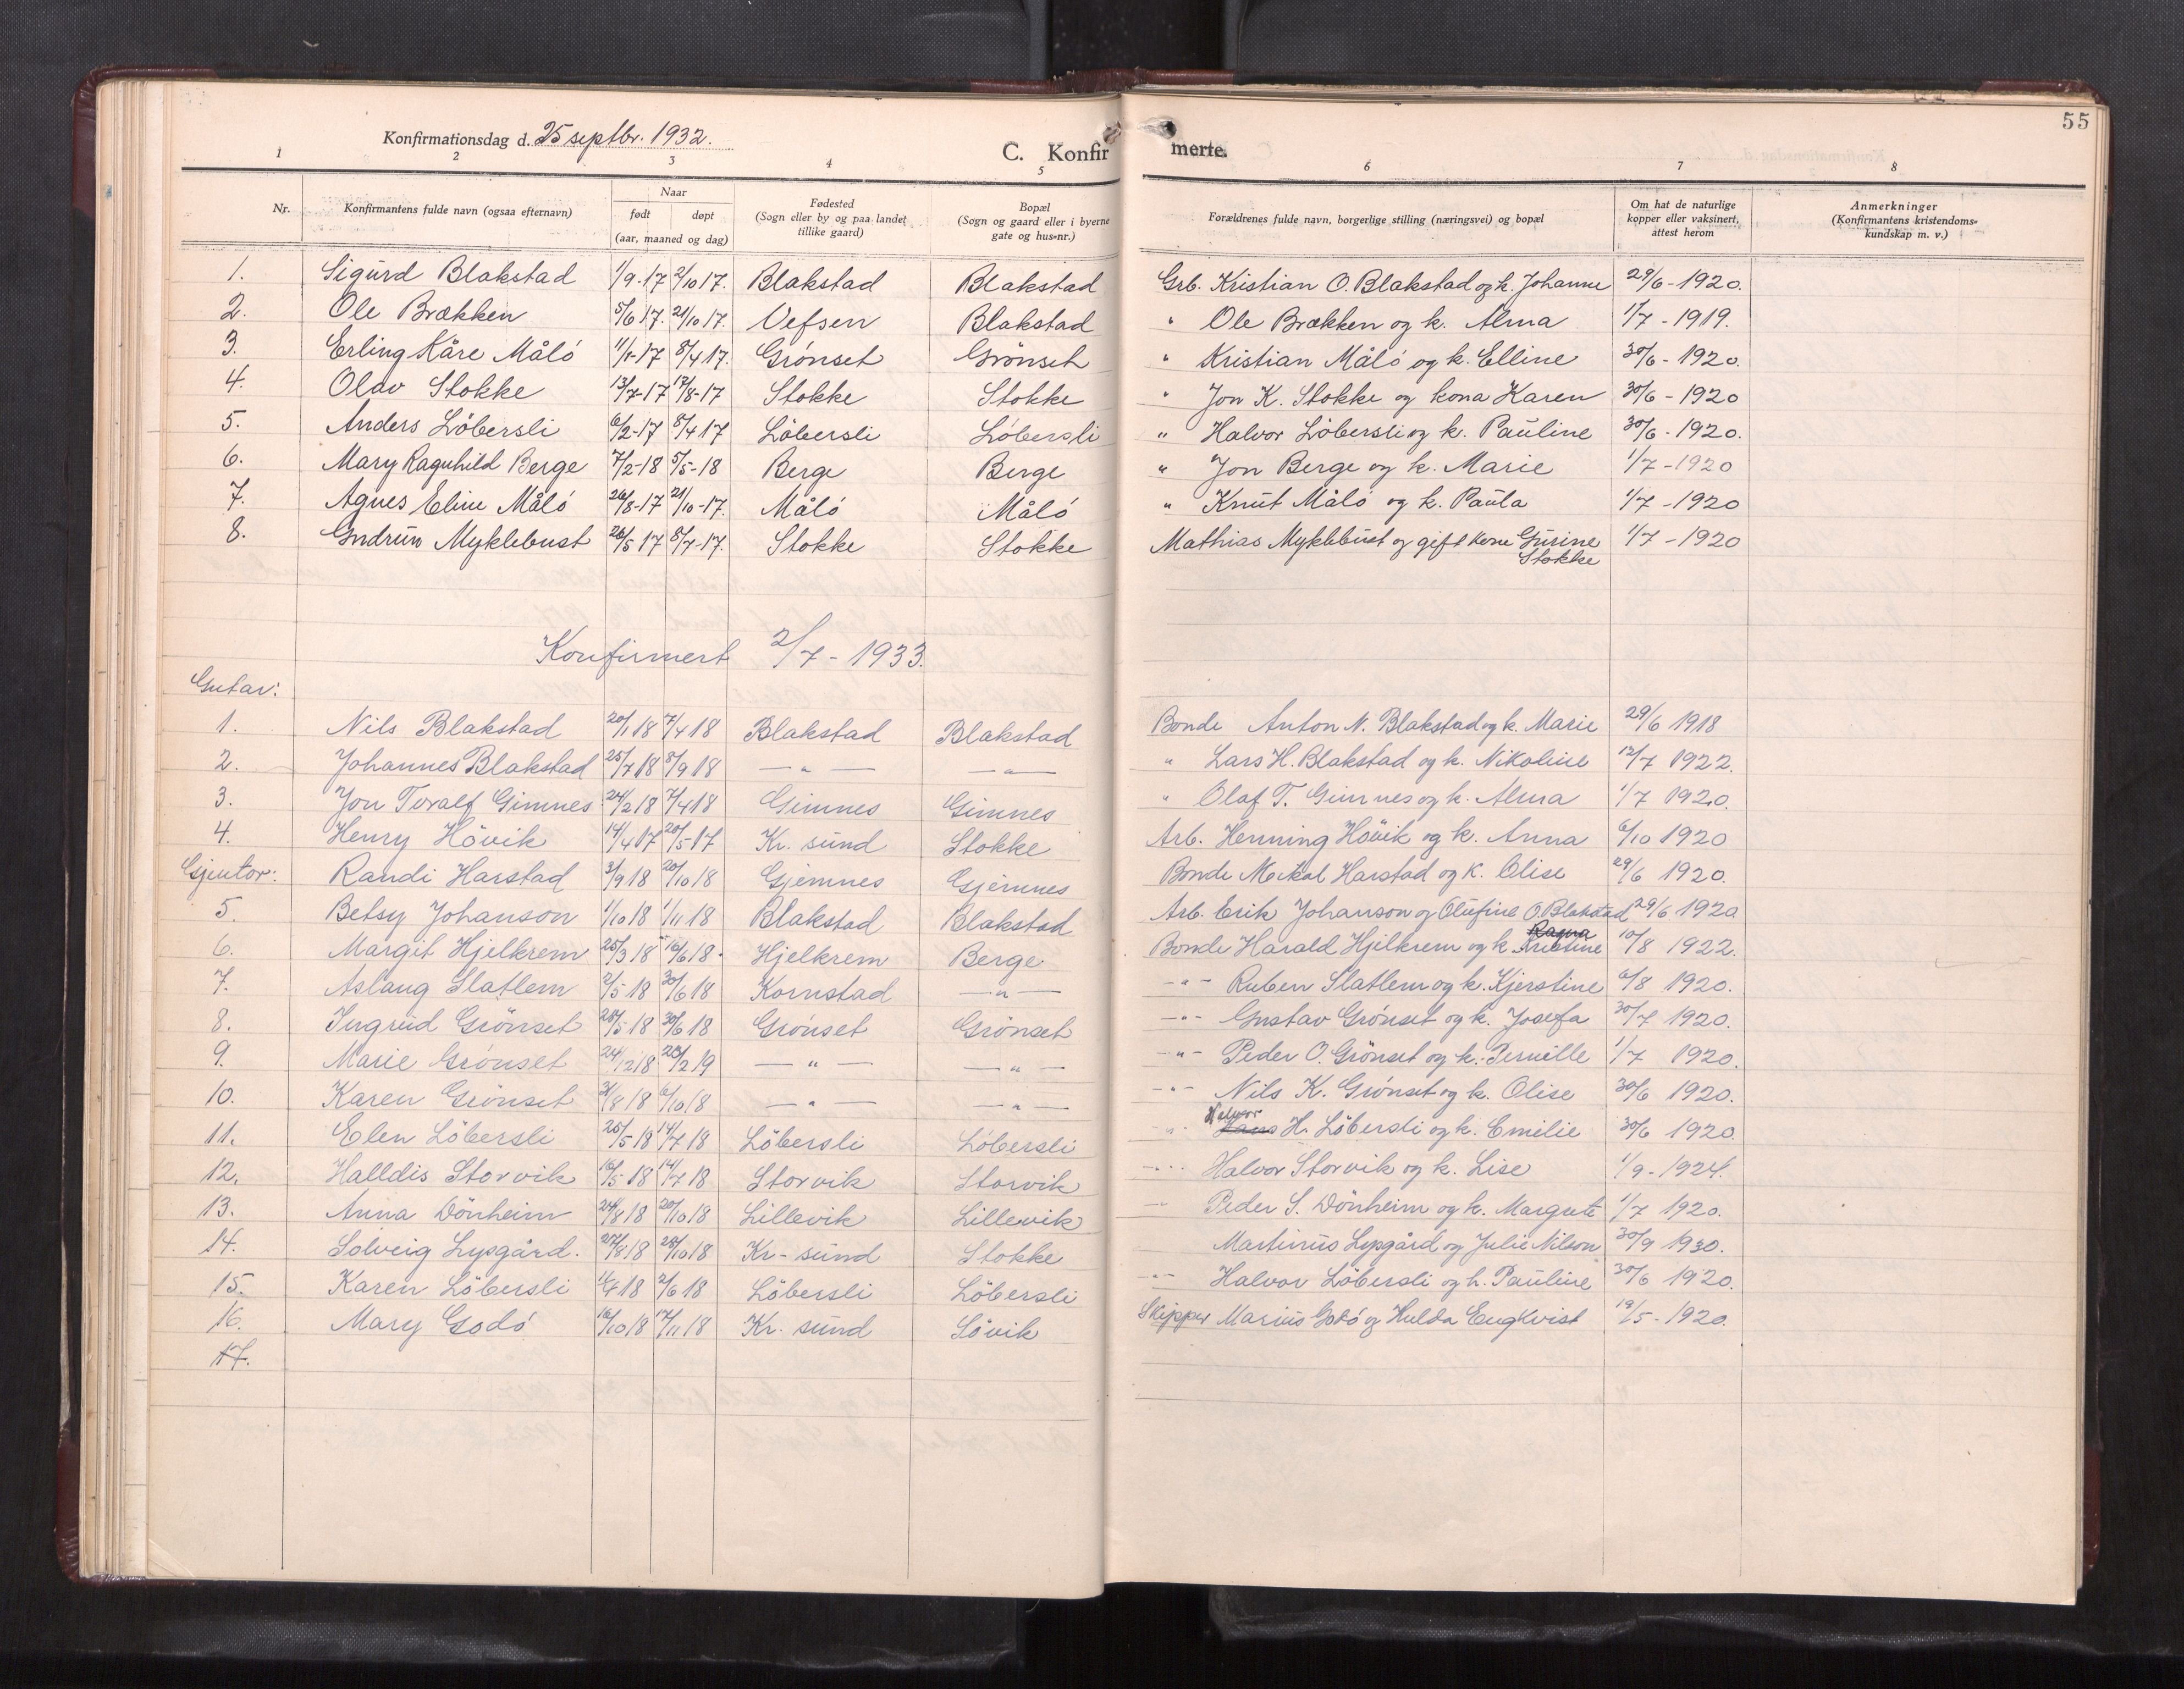 55
Konfirmationsdag d. 25 septbr. 1932.
C. Konfirmerte.
1 2 3 4 5 6 7 8
Nr. | Konfirmantens fulde navn (ogsaa efternavn) | Naar født døpt (aar, maaned og dag) | Fødested (Sogn eller by og paa landet tillike gaard) | Bopæl (Sogn og gaard eller i byerne gate og hus-nr.) | Forældrenes fulde navn, borgerlige stilling (næringsvei) og bopæl | Om hat de naturlige kopper eller vaksinert, attest herom | Anmerkninger (Konfirmantens kristendomskundskap m. v.)
1. Sigurd Blakstad 1/9-17 2/10 17. Blakstad Blakstad Grb. Kristian O. Blakstad og k. Johanne 29/6-1920.
2. Ole Brækken 5/6 17. 21/10 17. Vefsen Blakstad " Ole Brækken og k. Alma 1/7-1919.
3. Erling Kåre Måló 11/1-17 8/4 17. Grónset Grönset " Kristian Måló og k. Elline 30/6-1920.
4. Olav Stokke 13/7-17 17/8-17 Stokke Stokke " Jon K. Stokke og kona Karen 30/6-1920
5. Anders Löbersli 6/2-17 8/4 17 Löbersli Löbersli " Halvor Löbersli og k. Pauline 30/6-1920.
6. Mary Ragnhild Berge 7/2-18 5/5-18 Berge Berge " Jon Berge og k. Marie 1/7-1920
7. Agnes Eline Måló 26/8-17 21/10-17. Måló Måló " Knut Måló og k. Paula 1/7-1920
8. Gudrun Myklebust 26/5 17 8/7-17. Stokke Stokke Mathias Myklebust og gift kone Gurine Stokke 1/7-1920
Konfirmert 2/7-1933.
Gutar:
1. Nils Blakstad 20/1 18 7/4 18 Blakstad Blakstad Bonde Anton N. Blakstad og k. Marie 29/6 1918
2. Johannes Blakstad 25/7 18 8/9 18 — " — — " — " Lars H. Blakstad og k. Nikoline 12/7 1922.
3. Jon Toralf Gimnes 24/2 18 7/4 18 Gimnes Gimnes " Olaf T. Gimnes og k. Alma 1/7 1920.
4. Henry Hövik 14/4 17 20/5-17 Kr. sund Stokke Arb. Henning Hövik og k. Anna 6/10 1920
Gjentor: Randi Harstad 3/9 18 20/10 18 Gjemnes Gjemnes Bonde Mekal Harstad og k. Olise 29/6 1920.
5. Betsy Johanson 1/10 18 1/11 18 Blakstad Blakstad Arb. Erik Johanson og Olufine O. Blakstad 29/6 1920
6. Margit Hjelkrem 25/3 18 16/6 18. Hjelkrem Berge Bonde Harald Hjelkrem og k. Kristine Ragna 10/8 1922.
7. Aslaug Slatlem 2/5 18 30/6 18 Kornstad — " — — " — Ruben Slatlem og k. Kjerstine 6/8 1920.
8. Ingrid Grönset 28/5 18 30/6 18 Grónset Grönset — " — Gustav Grónset og k. Josefa 30/7 1920.
9. Marie Grónset 24/12 18 20/2 19 — " — — " — — " — Peder O. Grönset og k. Pernille 1/7 1920.
10. Karen Grönset 31/8 18 6/10 18 — " — — " — — " — Nils K. Grónset og k. Olise 30/6 1920.
11. Elen Löbersli 25/5-18 14/7 18 Löbersli Löbersli " Halvor Hans H. Löbersli og k. Emilie 30/6 1920.
12. Halldis Storvik 16/5-18 14/7 18 Storvik Storvik — " — Halvor Storvik og k. Lise 1/9-1924.
13. Anna Dönheim 24/8 18 20/10 18 Lillevik Lillevik — " — Peder S. Dönheim og k. Margrete 1/7 1920.
14. Solveig Lysgård. 27/8 18 28/10 18 Kr-sund Stokke Martinus Lysgård og Julie Nilson 30/9 1930.
15. Karen Löbersli 1/4 18 2/6 18 Löbersli Löbersli — " — Halvor Löbersli og h. Pauline 30/6 1920.
16. Mary Godó 16/10 18 17/11 18 Kr. sund Lövik Skipper Marius Godó og Hulda Engkvist 19/5-1920.
17.